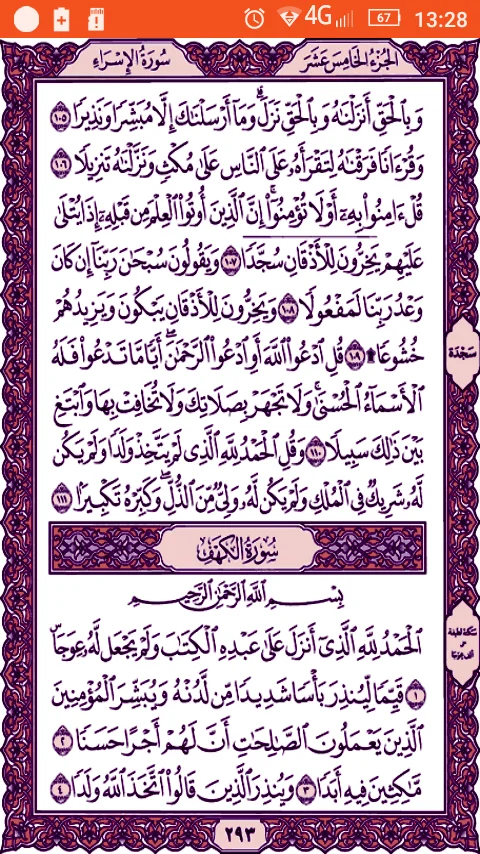 4G 67 13:28
سُورَةُ الإِسْرَاءِ الجُزْءُ الخَامِسَ عَشَرَ
وَبِالْحَقِّ أَنزَلْنَٰهُ وَبِالْحَقِّ نَزَلَ ۗ وَمَآ أَرْسَلْنَٰكَ إِلَّا مُبَشِّرًا وَنَذِيرًا ١٠٥
وَقُرْءَانًا فَرَقْنَٰهُ لِتَقْرَأَهُۥ عَلَى النَّاسِ عَلَىٰ مُكْثٍ وَنَزَّلْنَٰهُ تَنزِيلًا ١٠٦
قُلْ ءَامِنُوا۟ بِهِۦٓ أَوْ لَا تُؤْمِنُوٓا۟ ۚ إِنَّ الَّذِينَ أُوتُوا۟ الْعِلْمَ مِن قَبْلِهِۦٓ إِذَا يُتْلَىٰ
عَلَيْهِمْ يَخِرُّونَ لِلْأَذْقَانِ سُجَّدًا ١٠٧ وَيَقُولُونَ سُبْحَٰنَ رَبِّنَآ إِن كَانَ
وَعْدُ رَبِّنَا لَمَفْعُولًا ١٠٨ وَيَخِرُّونَ لِلْأَذْقَانِ يَبْكُونَ وَيَزِيدُهُمْ
خُشُوعًا ۩ ١٠٩ قُلِ ادْعُوا۟ اللَّهَ أَوِ ادْعُوا۟ الرَّحْمَٰنَ ۖ أَيًّا مَّا تَدْعُوا۟ فَلَهُ
الْأَسْمَآءُ الْحُسْنَىٰ ۚ وَلَا تَجْهَرْ بِصَلَاتِكَ وَلَا تُخَافِتْ بِهَا وَابْتَغِ
بَيْنَ ذَٰلِكَ سَبِيلًا ١١٠ وَقُلِ الْحَمْدُ لِلَّهِ الَّذِي لَمْ يَتَّخِذْ وَلَدًا وَلَمْ يَكُن
لَّهُۥ شَرِيكٌ فِي الْمُلْكِ وَلَمْ يَكُن لَّهُۥ وَلِيٌّ مِّنَ الذُّلِّ ۖ وَكَبِّرْهُ تَكْبِيرًۢا ١١١
سَجْدَة
سُورَةُ الكَهْفِ
بِسْمِ اللَّهِ الرَّحْمَٰنِ الرَّحِيمِ
الْحَمْدُ لِلَّهِ الَّذِيٓ أَنزَلَ عَلَىٰ عَبْدِهِ الْكِتَٰبَ وَلَمْ يَجْعَل لَّهُۥ عِوَجَاۜ
١ قَيِّمًا لِّيُنذِرَ بَأْسًا شَدِيدًا مِّن لَّدُنْهُ وَيُبَشِّرَ الْمُؤْمِنِينَ
الَّذِينَ يَعْمَلُونَ الصَّٰلِحَٰتِ أَنَّ لَهُمْ أَجْرًا حَسَنًا ٢
مَّٰكِثِينَ فِيهِ أَبَدًا ٣ وَيُنذِرَ الَّذِينَ قَالُوا۟ اتَّخَذَ اللَّهُ وَلَدًا ٤
٢٩٣